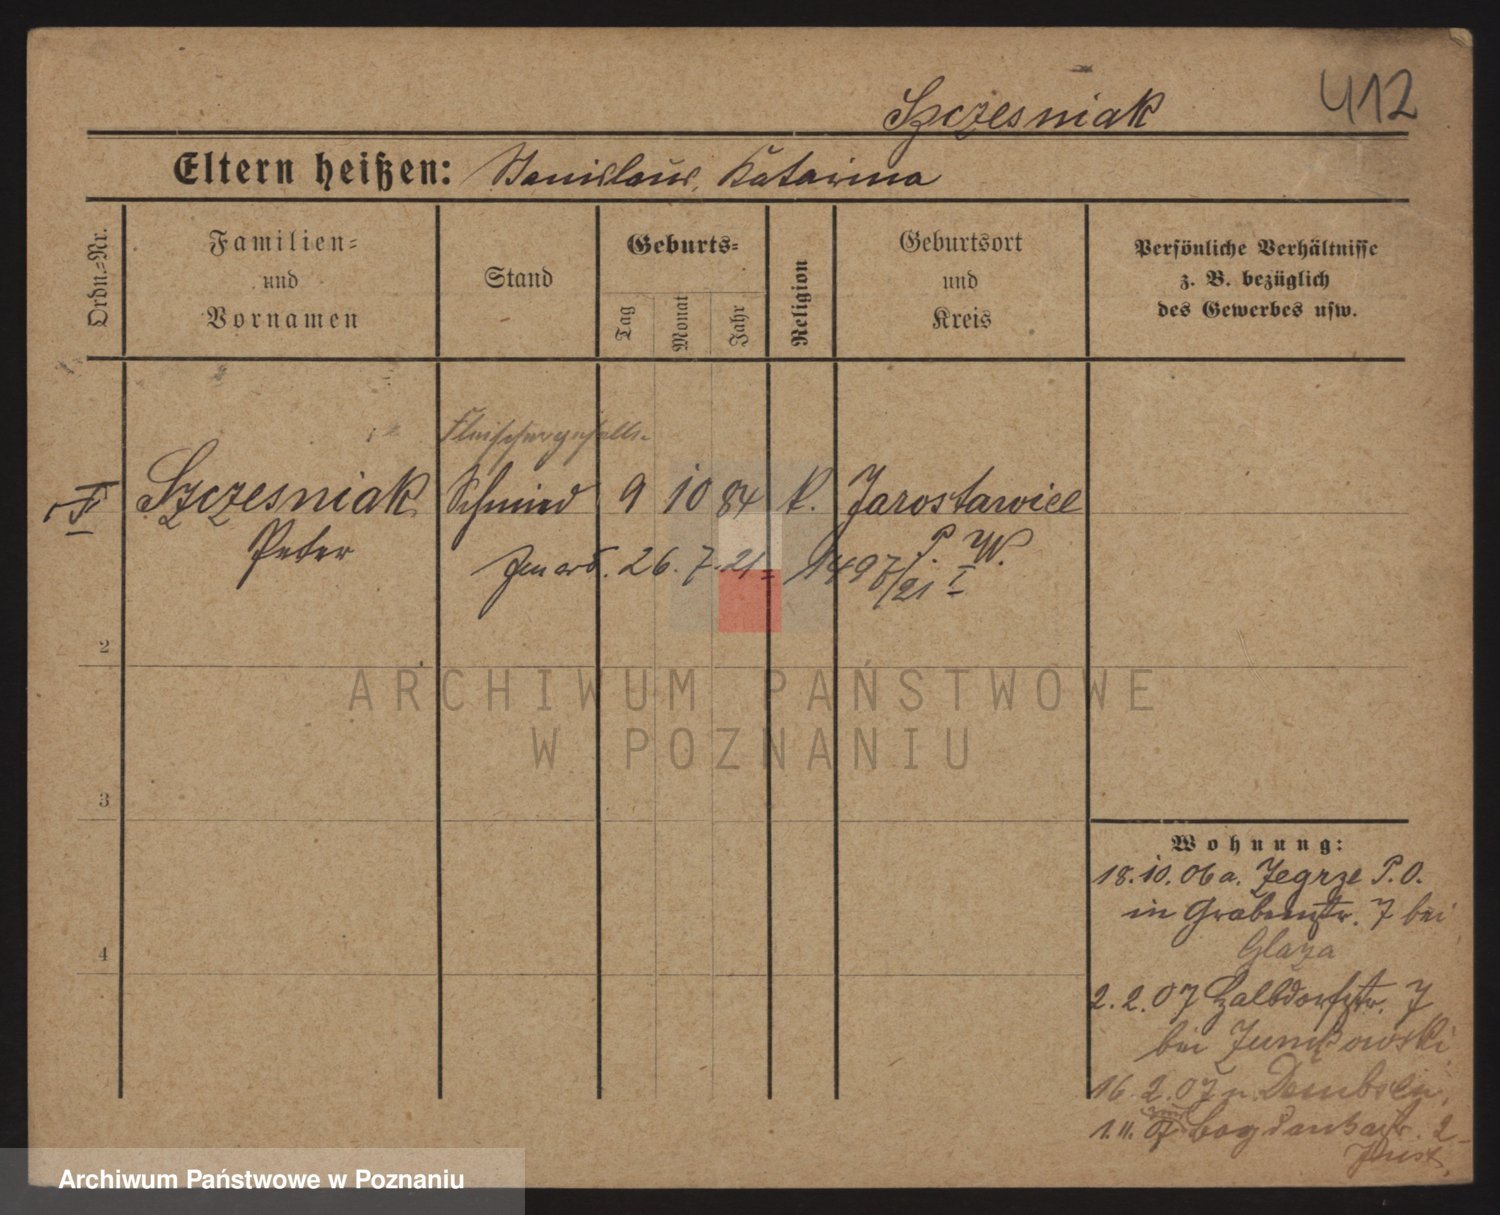 Szczesniak
412
Eltern heißen: Stanislaus, Katarina
Ordn.=Nr.
Familien=
und
Vornamen
Stand
Geburts=
Tag
Monat
Jahr
Religion
Geburtsort
und
Kreis
Persönliche Verhältnisse
z. B. bezüglich
des Gewerbes usw.
Fleischergeselle
I Szczesniak Schmied 9 10 84 k. Jarosławiec
Peter
P. W.
26. 7. 21 1497/21 I
2
3
4
ARCHIWUM PAŃSTWOWE
W POZNANIU
Wohnung:
18. 10. 06 a. Zegrze P. O.
in Grabenstr. 7 bei
Glaza
2. 2. 07 Halbdorfstr. 7
bei
16. 2. 07 n. Dembsen
1. 11. 07 Bogdankastr. 2
Archiwum Państwowe w Poznaniu